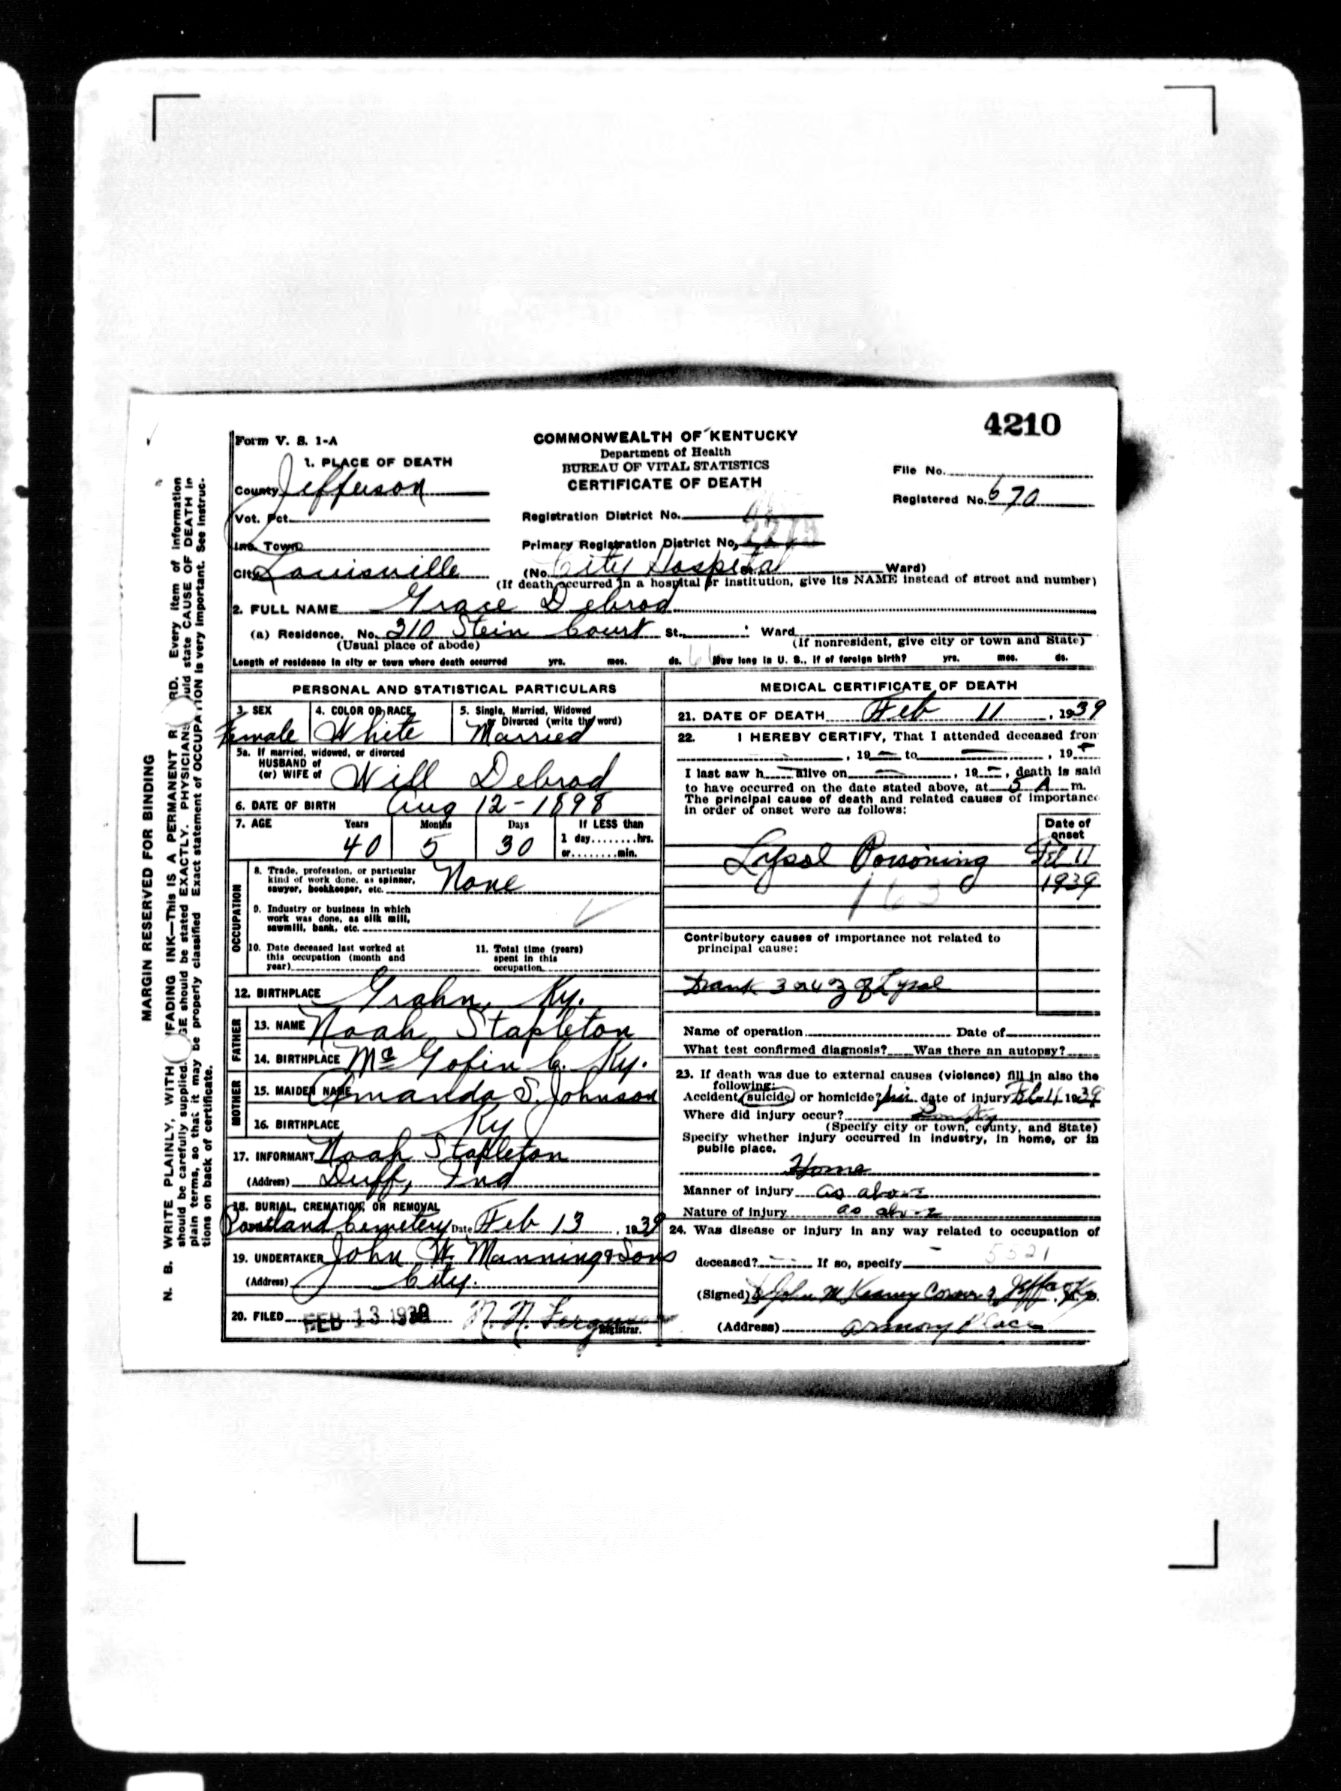 4210
Form V. S. 1-A
COMMONWEALTH OF KENTUCKY
Department of Health
BUREAU OF VITAL STATISTICS
CERTIFICATE OF DEATH
File No.
Registered No. 670
1. PLACE OF DEATH
County Jefferson
Vot. Pct.
Inc. Town
City Louisville
Registration District No.
Primary Registration District No.
(No. City Hospital St. Ward)
(If death occurred in a hospital or institution, give its NAME instead of street and number)
2. FULL NAME Grace Debrod
(a) Residence. No. 210 Stein Court St. Ward
(Usual place of abode) (If nonresident, give city or town and State)
Length of residence in city or town where death occurred yrs. mos. ds. How long in U. S., if of foreign birth? yrs. mos. ds.
PERSONAL AND STATISTICAL PARTICULARS
3. SEX Female
4. COLOR OR RACE White
5. Single, Married, Widowed
or Divorced (write the word)
Married
5a. If married, widowed, or divorced
HUSBAND of
(or) WIFE of Will Debrod
6. DATE OF BIRTH Aug 12-1898
7. AGE Years Months Days If LESS than
1 day........hrs.
or........min.
40 5 30
OCCUPATION
8. Trade, profession, or particular
kind of work done, as spinner,
sawyer, bookkeeper, etc. None
9. Industry or business in which
work was done, as silk mill,
sawmill, bank, etc.
10. Date deceased last worked at
this occupation (month and
year)
11. Total time (years)
spent in this
occupation
12. BIRTHPLACE Grahn, Ky.
FATHER
13. NAME Noah Stapleton
14. BIRTHPLACE Mc Gofin C. Ky.
MOTHER
15. MAIDEN NAME Amanda S. Johnson
16. BIRTHPLACE Ky
17. INFORMANT Noah Stapleton
(Address) Duff, Ind
18. BURIAL, CREMATION, OR REMOVAL
Portland Cemetery Date Feb 13, 1939
19. UNDERTAKER John W. Manning & Sons
(Address) City.
20. FILED FEB 13 1939 N. N. Registrar.
MEDICAL CERTIFICATE OF DEATH
21. DATE OF DEATH Feb 11, 1939
22. I HEREBY CERTIFY, That I attended deceased from
, 19 — to , 19 —
I last saw h — alive on — , 19 — , death is said
to have occurred on the date stated above, at 5 A m.
The principal cause of death and related causes of importance
in order of onset were as follows:
Date of
onset
Lysol Poisoning Feb 11
1939
163
Contributory causes of importance not related to
principal cause:
Drank 3 or 4 oz of Lysol
Name of operation Date of
What test confirmed diagnosis? Was there an autopsy?
23. If death was due to external causes (violence) fill in also the
following:
Accident, suicide, or homicide? date of injury Feb 11 1939
Where did injury occur?
(Specify city or town, county, and State)
Specify whether injury occurred in industry, in home, or in
public place.
Home
Manner of injury as above
Nature of injury as above
24. Was disease or injury in any way related to occupation of
deceased? If so, specify
(Signed) John M Keaney Coroner Jeff Co Ky.
(Address) Armory Place
MARGIN RESERVED FOR BINDING
N. B. WRITE PLAINLY, WITH FADING INK—This IS A PERMANENT R RD. Every item of information
should be carefully supplied. GE should be stated EXACTLY. PHYSICIANS uld state CAUSE OF DEATH in
plain terms, so that it may be properly classified Exact statement of OCCUPATION is very important. See instruc-
tions on back of certificate.